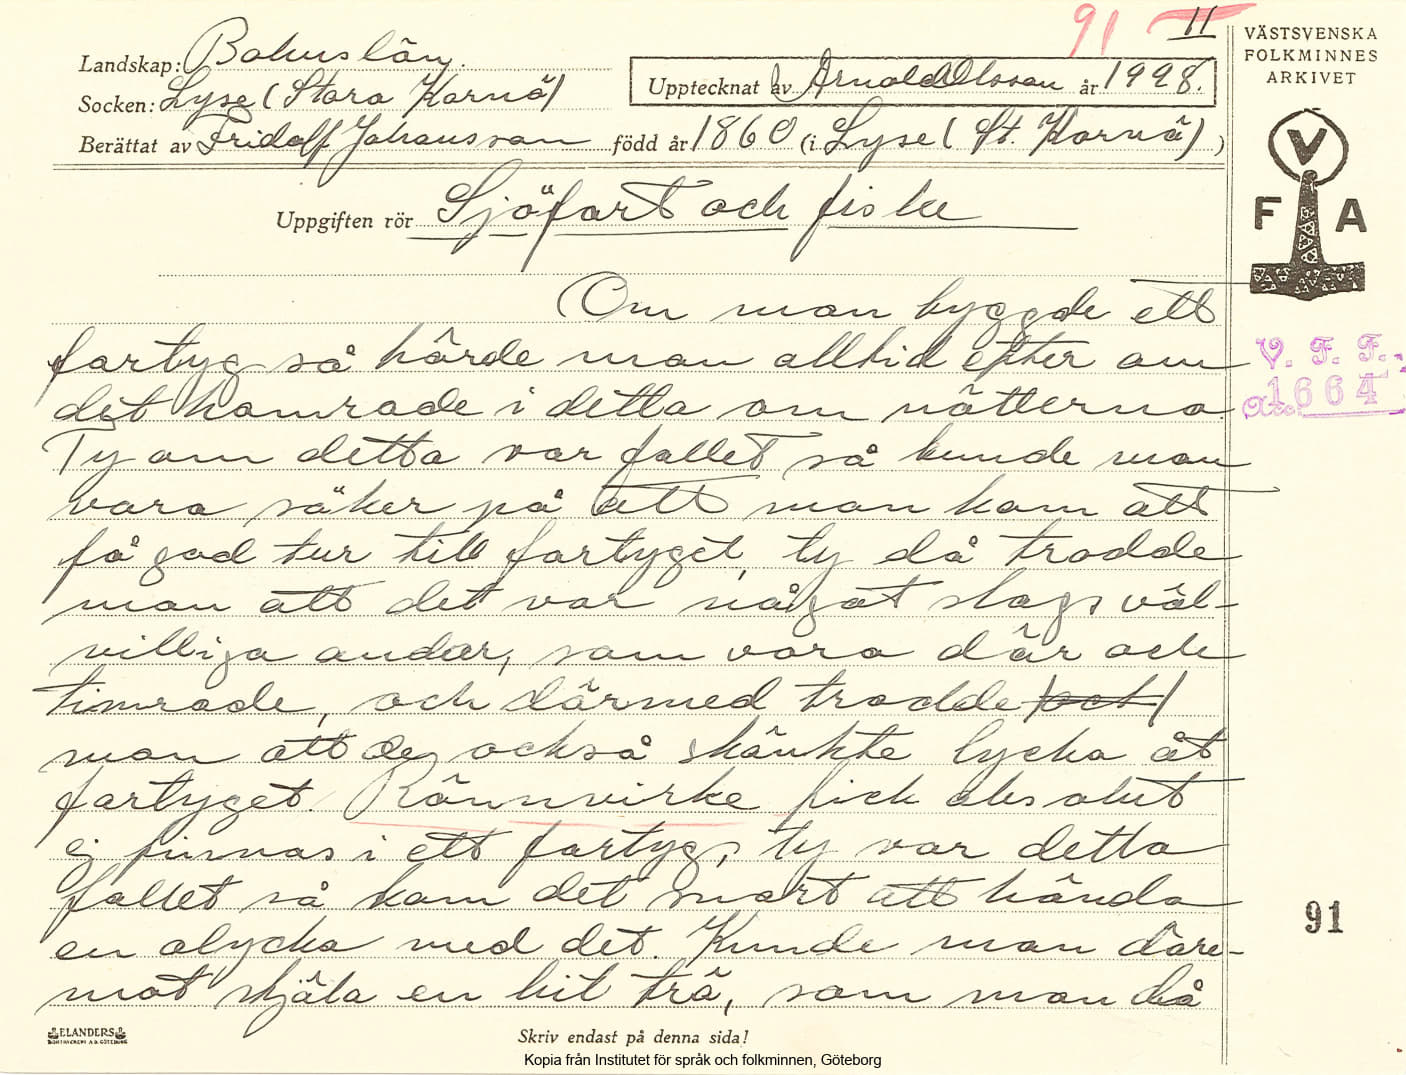 91 11
VÄSTSVENSKA
FOLKMINNES
ARKIVET
Landskap: Bohuslän.
Socken: Lyse (Stora Kornö)
Upptecknat av Arnold Olsson år 1928.
Berättat av Fridolf Johansson född år 1860 (i Lyse (St. Kornö) )
V
F A
Uppgiften rör Sjöfart och fiske
Om man byggde ett
fartyg så hörde man alltid efter om
det hamrade i detta om nätterna.
Ty om detta var fallet så kunde man
vara säker på att man kom att
få god tur till fartyget, ty då trodde
man att det var något slags väl-
villiga andar, som voro där och
timrade, och därmed trodde och
man att de också skänkte lycka åt
fartyget. Rönnvirke fick absolut
ej finnas i ett fartyg, ty var detta
fallet så kom det snart att hända
en olycka med det. Kunde man däre-
mot stjäla en bit trä, som man då
V. F. F.
Acc. 1664
91
ELANDERS
BOKTRYCKERI A.B. GÖTEBORG
Skriv endast på denna sida!
Kopia från Institutet för språk och folkminnen, Göteborg